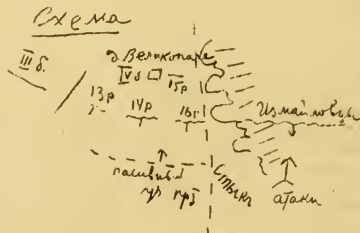 Схема
III б.
д Великопаре
IV б 15р
13р 14р 16р
Измайловцы
пасивный
уч
Стыкъ
атаки